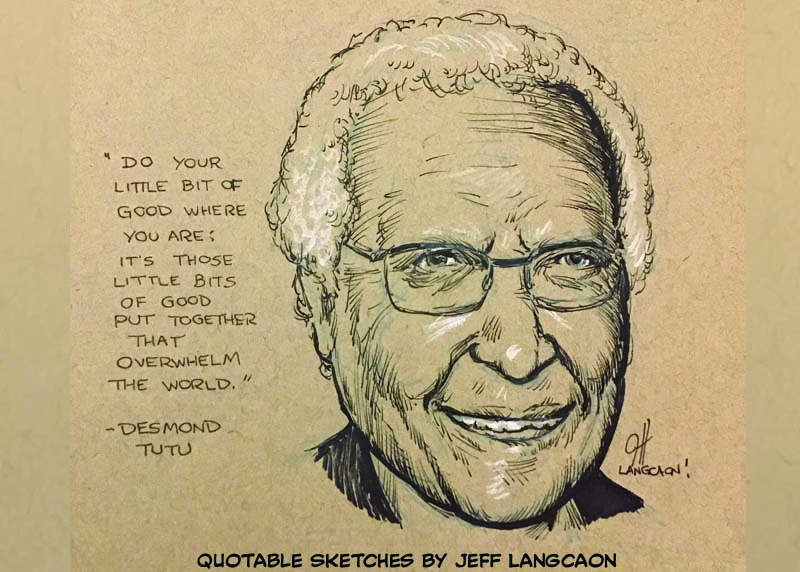 " DO YOUR
LITTLE BIT OF
GOOD WHERE
YOU ARE;
IT'S THOSE
LITTLE BITS
OF GOOD
PUT TOGETHER
THAT
OVERWHELM
THE WORLD."
-DESMOND
TUTU
LANGCAON!
QUOTABLE SKETCHES BY JEFF LANGCAON